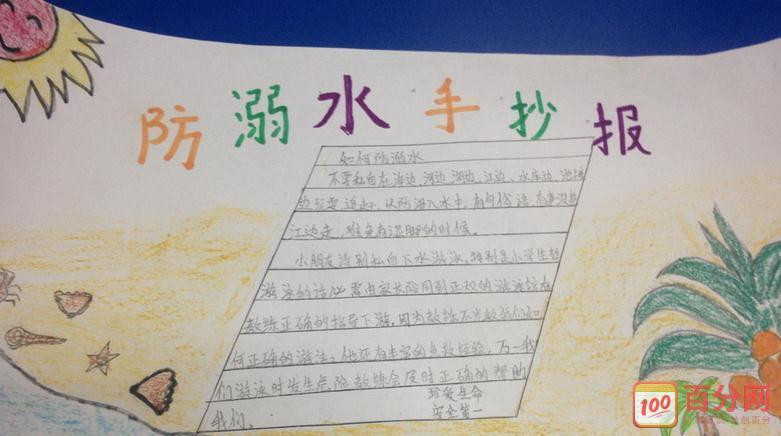 防溺水手抄报
如何防溺水
不要私自在海边、河边、湖边、江边、水库边、池塘
边玩耍、追赶,以防滑入水中,有句俗话,有事没事
江边走,难免有湿脚的时候。
小朋友请别私自下水游泳,特别是小学生想
游泳的话必需由家长陪同到正规的游泳馆在
教练正确的指导下游,因为教练不光教我们如
何正确的游法,他还有丰富的急救经验,万一我
们游泳时发生危险教练会及时正确的帮助
我们。
珍爱生命
安全第一
100 百分网